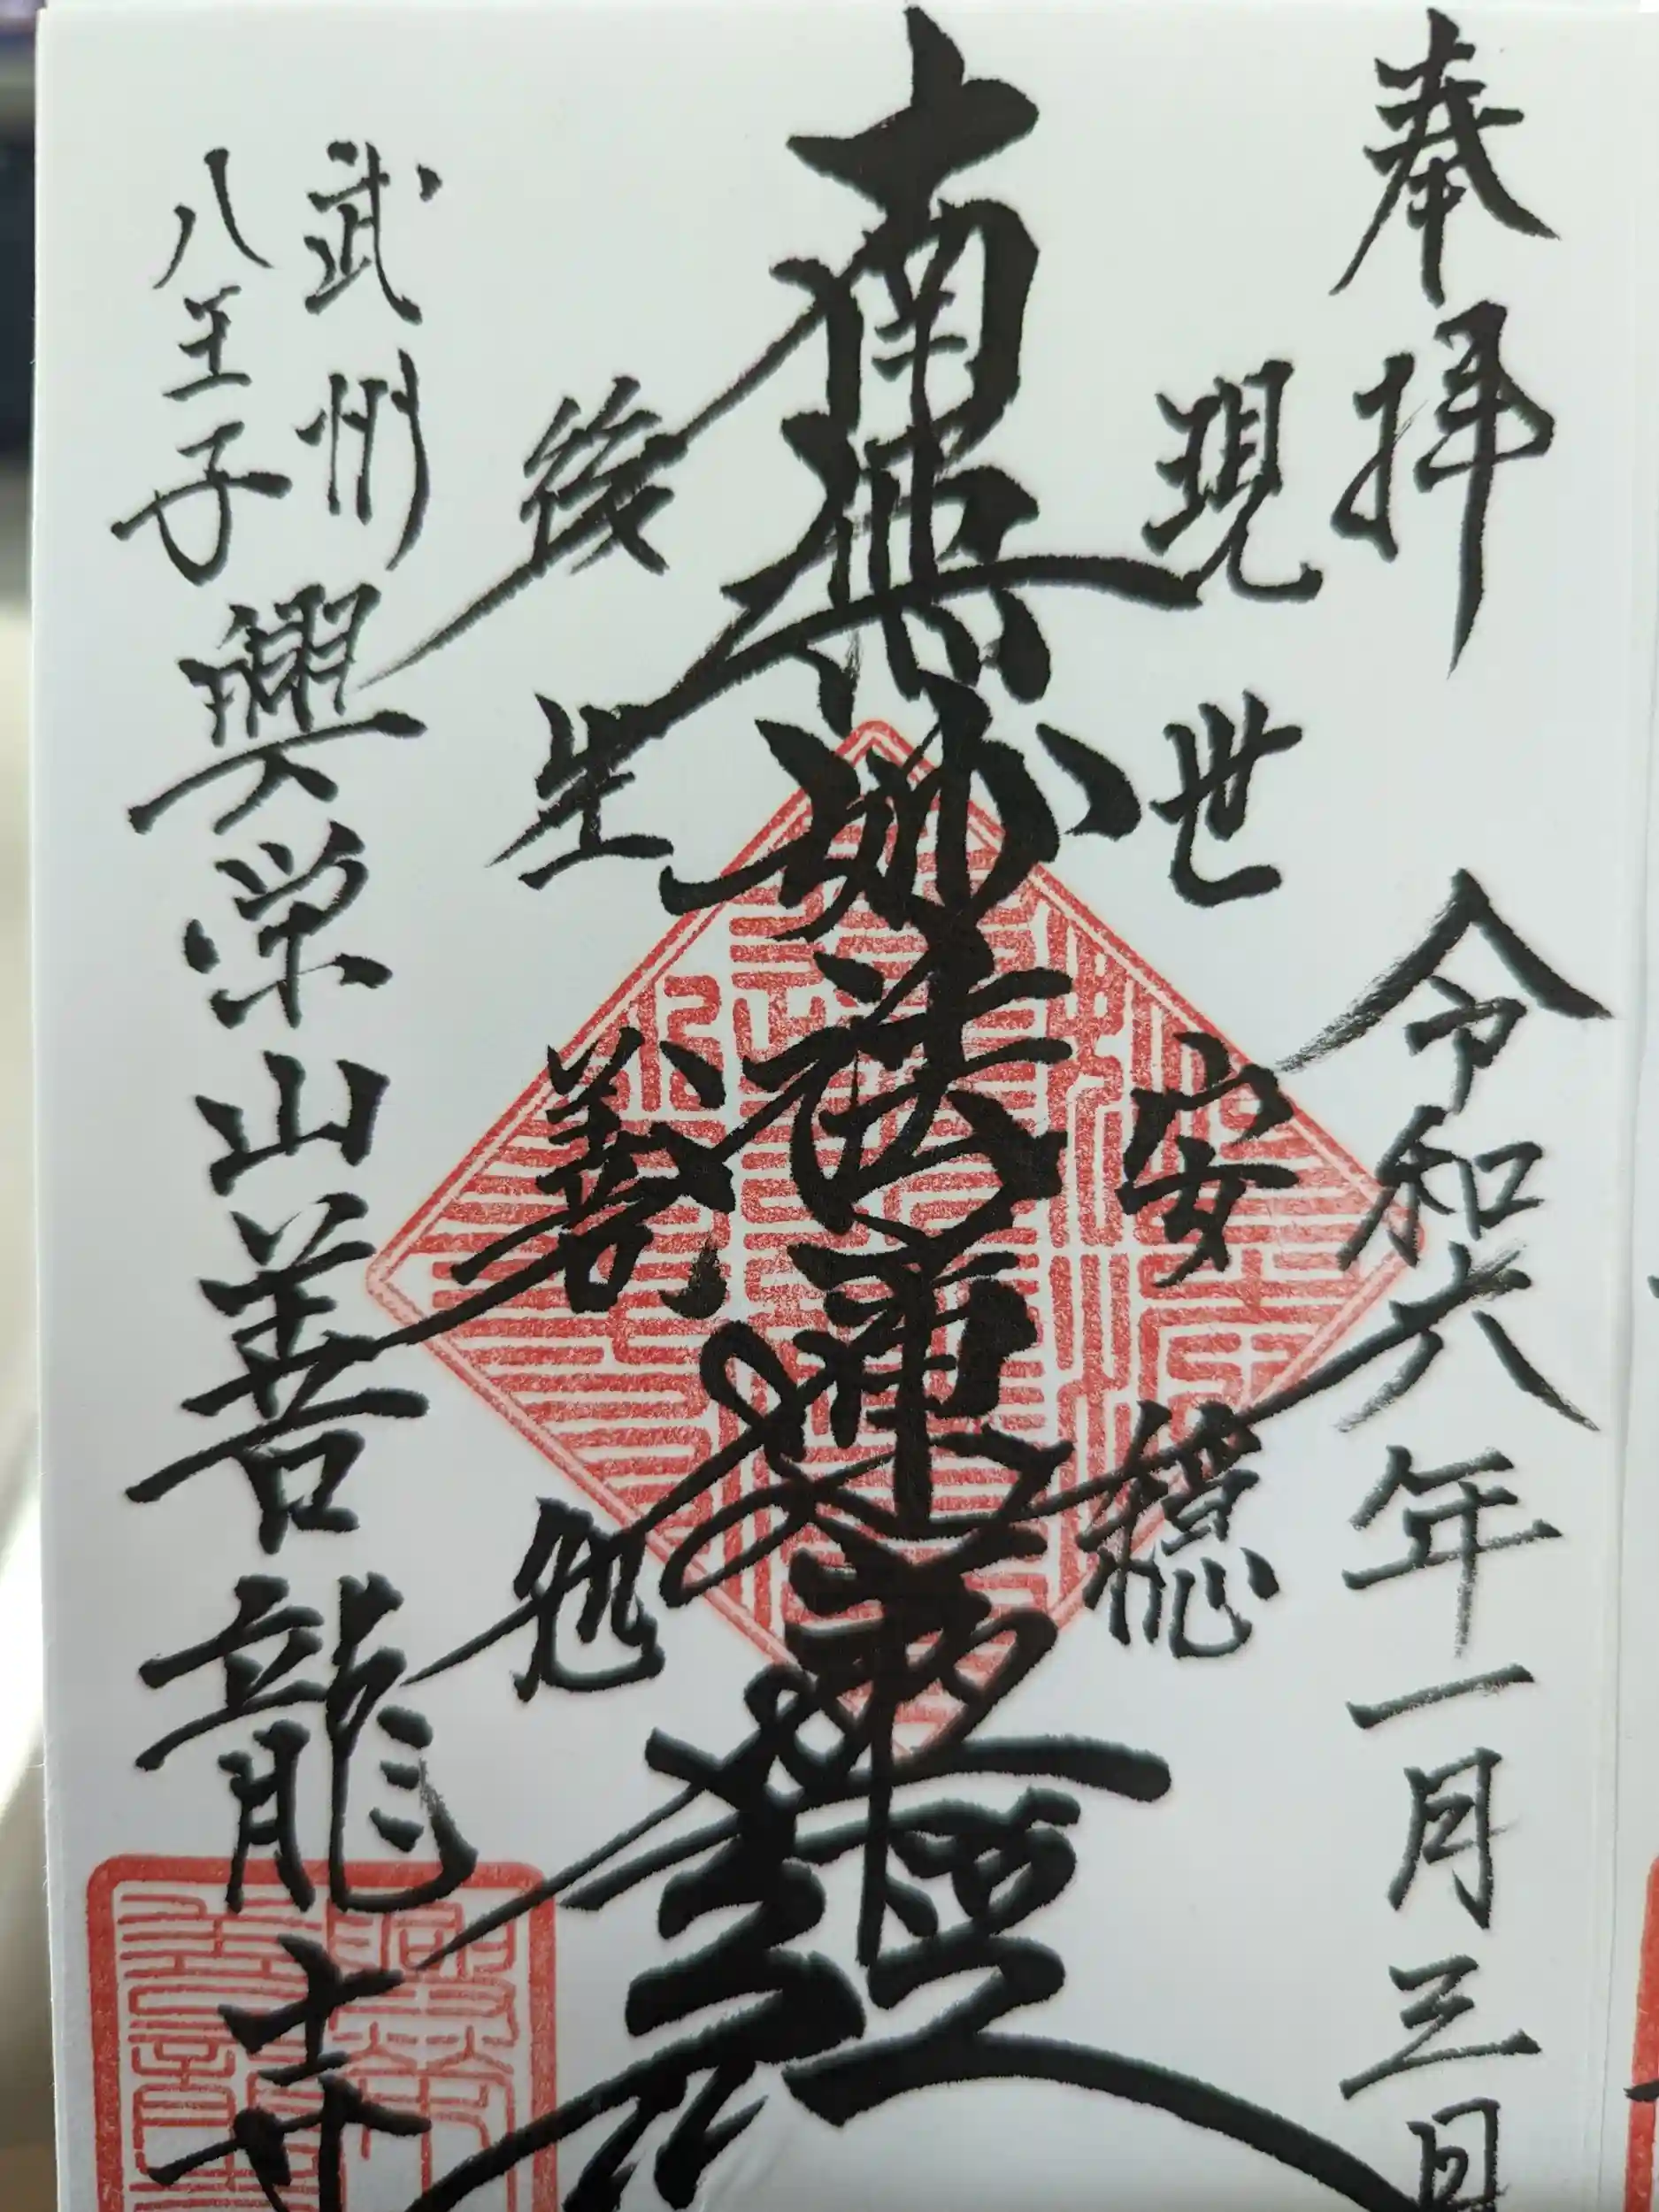 奉拝 令和六年一月三日
現世安穏
南無妙法蓮華経
後生善処
武州
八王子
興栄山善龍寺